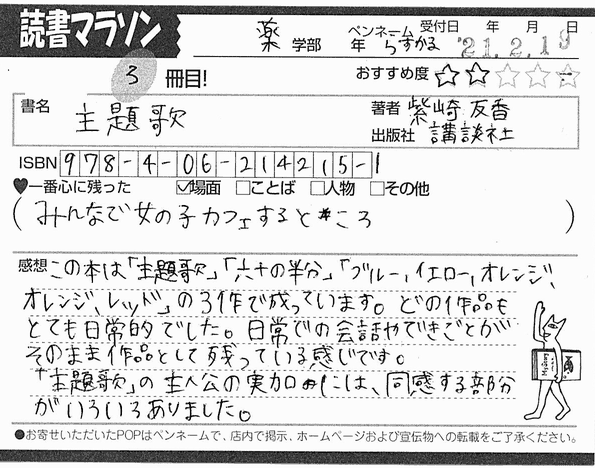 読書マラソン
薬 学部 年 ペンネーム らすかる 受付日 年 月 日 '21.2.19
3 冊目! おすすめ度 ☆☆☆☆☆
書名 主題歌 著者 柴崎友香
出版社 講談社
ISBN 978-4-06-214215-1
♥一番心に残った ☑場面 □ことば □人物 □その他
(みんなで女の子カフェするところ)
感想 この本は「主題歌」「六十の半分」「ブルー、イエロー、オレンジ、
オレンジ、レッド」の3作で成っています。どの作品も
とても日常的でした。日常での会話やできごとが
そのまま作品として残っている感じです。
「主題歌」の主人公の実加には、同感する部分
がいろいろありました。
●お寄せいただいたPOPはペンネームで、店内で掲示、ホームページおよび宣伝物への転載をご了承ください。